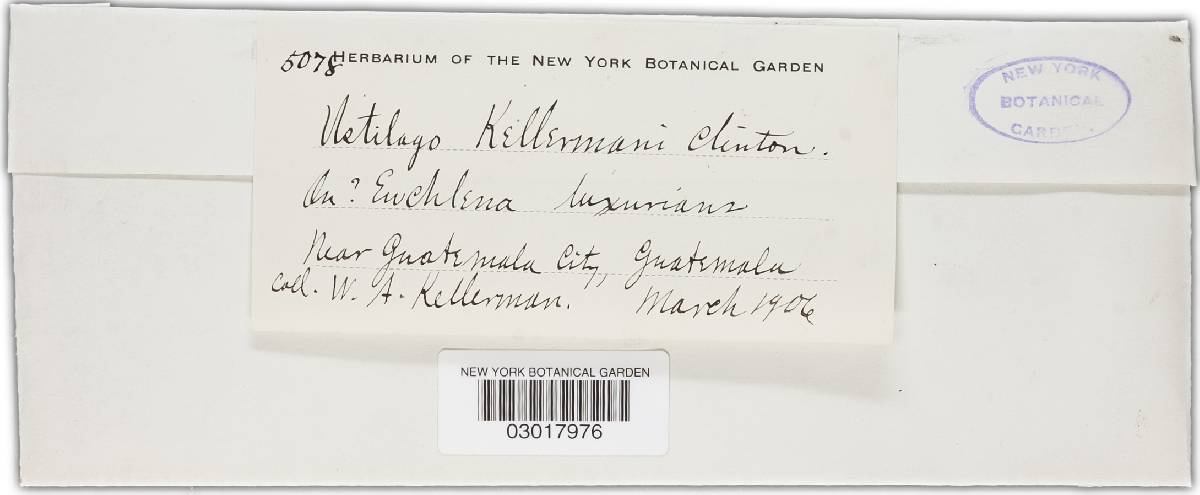 5078 HERBARIUM OF THE NEW YORK BOTANICAL GARDEN
NEW YORK
BOTANICAL
GARDEN.
Ustilago Kellermani Clinton.
On? Euchlena luxurians
Near Guatemala City, Guatemala
Coll. W. A. Kellerman. March 1906
NEW YORK BOTANICAL GARDEN
03017976